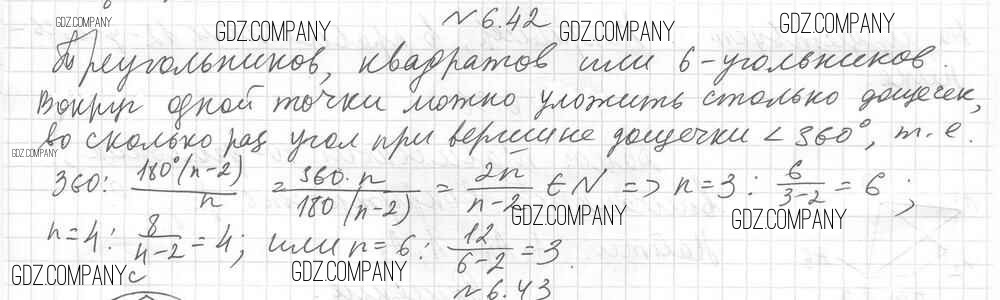 № 6.42
GDZ.COMPANY GDZ.COMPANY GDZ.COMPANY GDZ.COMPANY
Треугольников, квадратов или 6-угольников.
Вокруг одной точки можно уложить столько дощечек,
во сколько раз угол при вершине дощечки < 360°, т.е.
GDZ.COMPANY
360 : 180°(n-2)/n = 360·n/180(n-2) = 2n/n-2 ∈ N => n=3 : 6/3-2 = 6 ;
GDZ.COMPANY GDZ.COMPANY
n=4 : 8/4-2 = 4; или n=6 : 12/6-2 = 3.
GDZ.COMPANY GDZ.COMPANY
№ 6.43